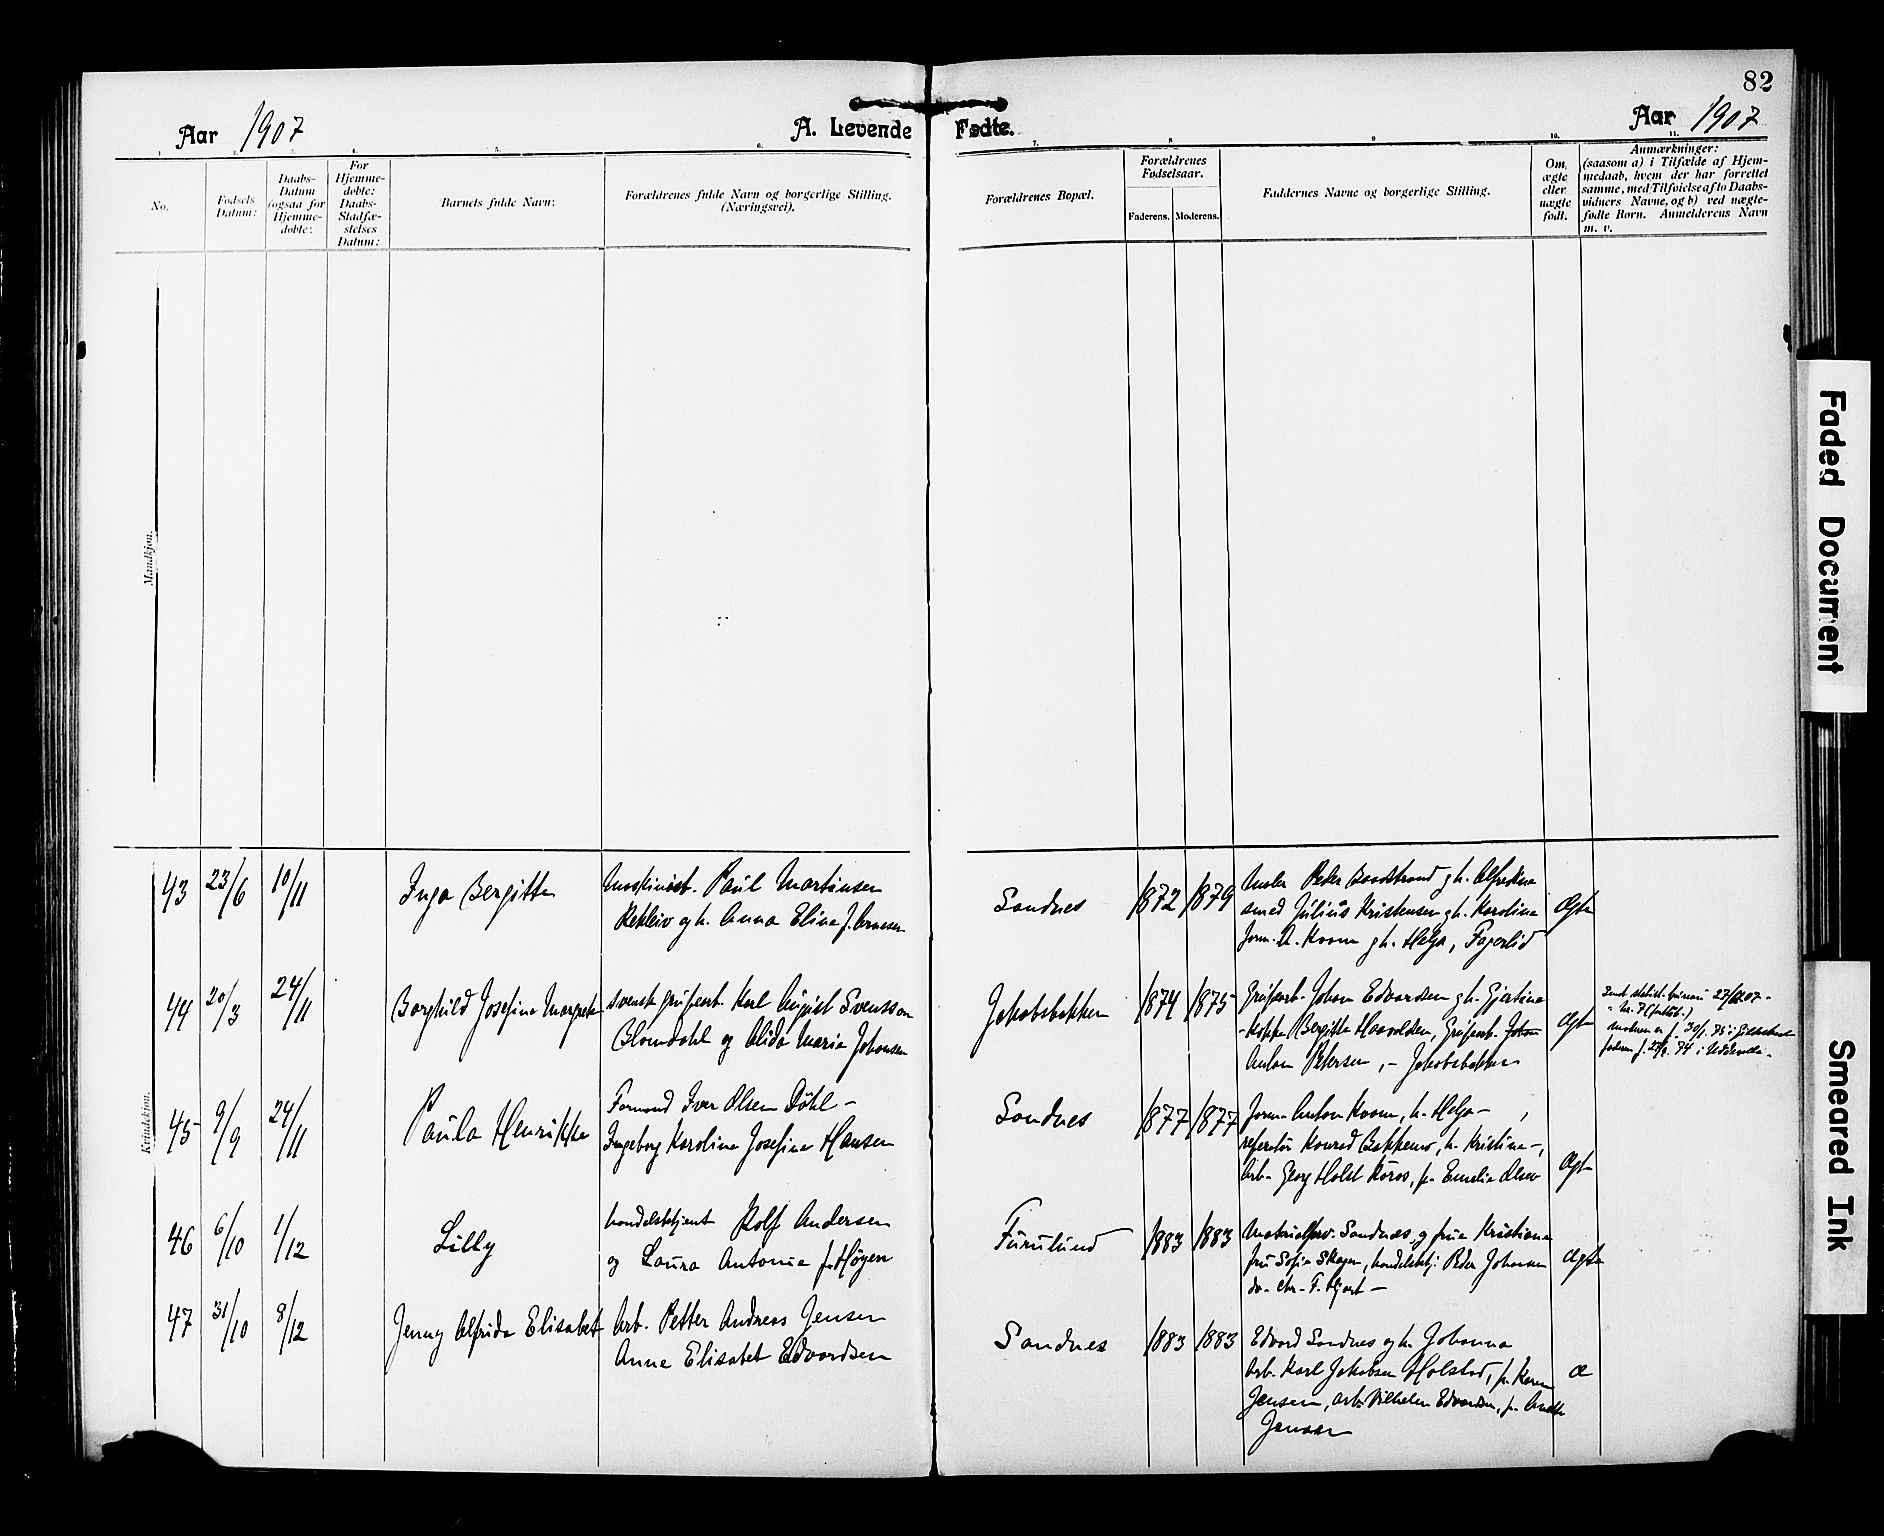 82
Aar 1907
A. Levende Fødte.
Aar 1907
1. 2. 3. 4. 5. 6. 7. 8. 9. 10. 11.
No.
Fødsels
Datum:
Daabs-
Datum
(ogsaa for
Hjemme-
døbte:
For
Hjemme-
døbte:
Daabs-
Stadfæ-
stelses
Datum:
Barnets fulde Navn:
Forældrenes fulde Navn og borgerlige Stilling.
(Næringsvei).
Forældrenes Bopæl.
Forældrenes
Fødselsaar.
Faderens. Moderens.
Faddernes Navne og borgerlige Stilling.
Om
ægte
eller
uægte
født.
Anmærkninger:
(saasom a) i Tilfælde af Hjem-
medaab, hvem der har forrettet
samme, med Tilføielse af to Daabs-
vidners Navne, og b) ved uægte-
fødte Børn. Anmelderens Navn
m. v.
Mandkjøn.
Kvindekjøn.
43 23/6 10/11
Inga Bergitte
Maskinist. Paul Martinsen
Rekleiv og h. Anna Elina f. Arnesen
Sandnes
1872 1879
Peter g h. Alfredine
smed Julius Kristensen g h. Karoline
form. A. Koom g h. Helga, Fagerlid
Ægte
44 20/3 24/11
Borghild Josefine Margrete
svensk grubearb. Karl August Svensson
Blomdahl og Alida Maria Johansen
Jakobsbakken
1874 1875
Grubearb. Johan Edvardsen g h. Gjertine
kokke Bergitte Haavoldsen, Grubearb. Johan
Anton Petersen, – Jakobsbakken
Ægte
statist. bureau 27/12 07
moderen er f. 30/1. 75 i
faderen f. 27/2. 74 i Uddevalla.
45 9/9 24/11
Paula Henrikke
Formand Iver Olsen Døhl –
Ingeborg Karoline Josefine Hansen
Sandnes
1877 1877
form. Anton Koom, h. Helga –,
Konrad Bakkemo, h. Kristine –,
Arb. Georg Holst Røros, fr. Emelie Olsen
Ægte
46 6/10 1/12
Lilly
handelsbetjent Rolf Andersen
og Laura Antonie f. Høyen
Furulund
1883 1883
Materialforv. Sandnes og frue Kristiane
fru Sofie Skogen, handelsbetj. Peder Johansen
do. Chr. F. Hjort –
Ægte
47 31/10 8/12
Jenny Alfrida Elisabet
Arb. Petter Andreas Jensen
Anne Elisabet Edvardsen
Sandnes
1883 1883
Edvard Sandnes og h. Johanna
Arb. Karl Jakobsen Holstad, fr. Karen
Jensen, arb. Vilhelm Edvardsen, fr.
Jensen
Æ
Faded Document
Smeared Ink